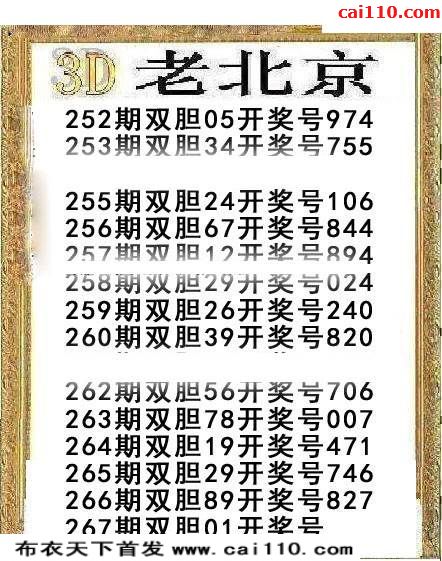 cai110.com
3D 老北京
252期双胆05开奖号974
253期双胆34开奖号755
255期双胆24开奖号106
256期双胆67开奖号844
257期双胆12开奖号894
258期双胆29开奖号024
259期双胆26开奖号240
260期双胆39开奖号820
262期双胆56开奖号706
263期双胆78开奖号007
264期双胆19开奖号471
265期双胆29开奖号746
266期双胆89开奖号827
267期双胆01开奖号
布衣天下首发 www.cai110.com